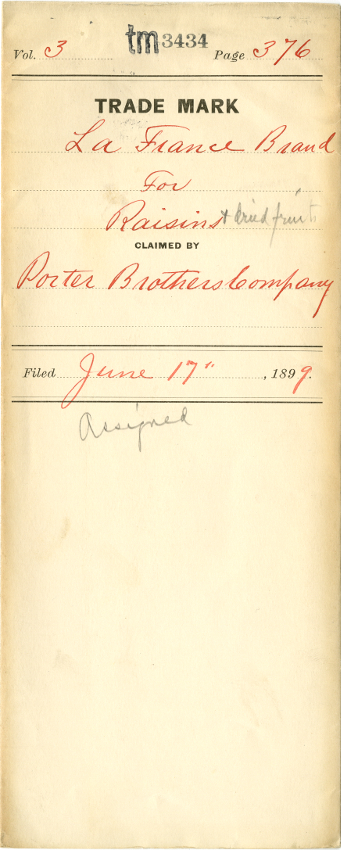 Vol. 3 tm 3434 Page 376
TRADE MARK
La France Brand
For
Raisins & dried fruit
CLAIMED BY
Porter Brothers Company
Filed June 17", 1899.
Assigned